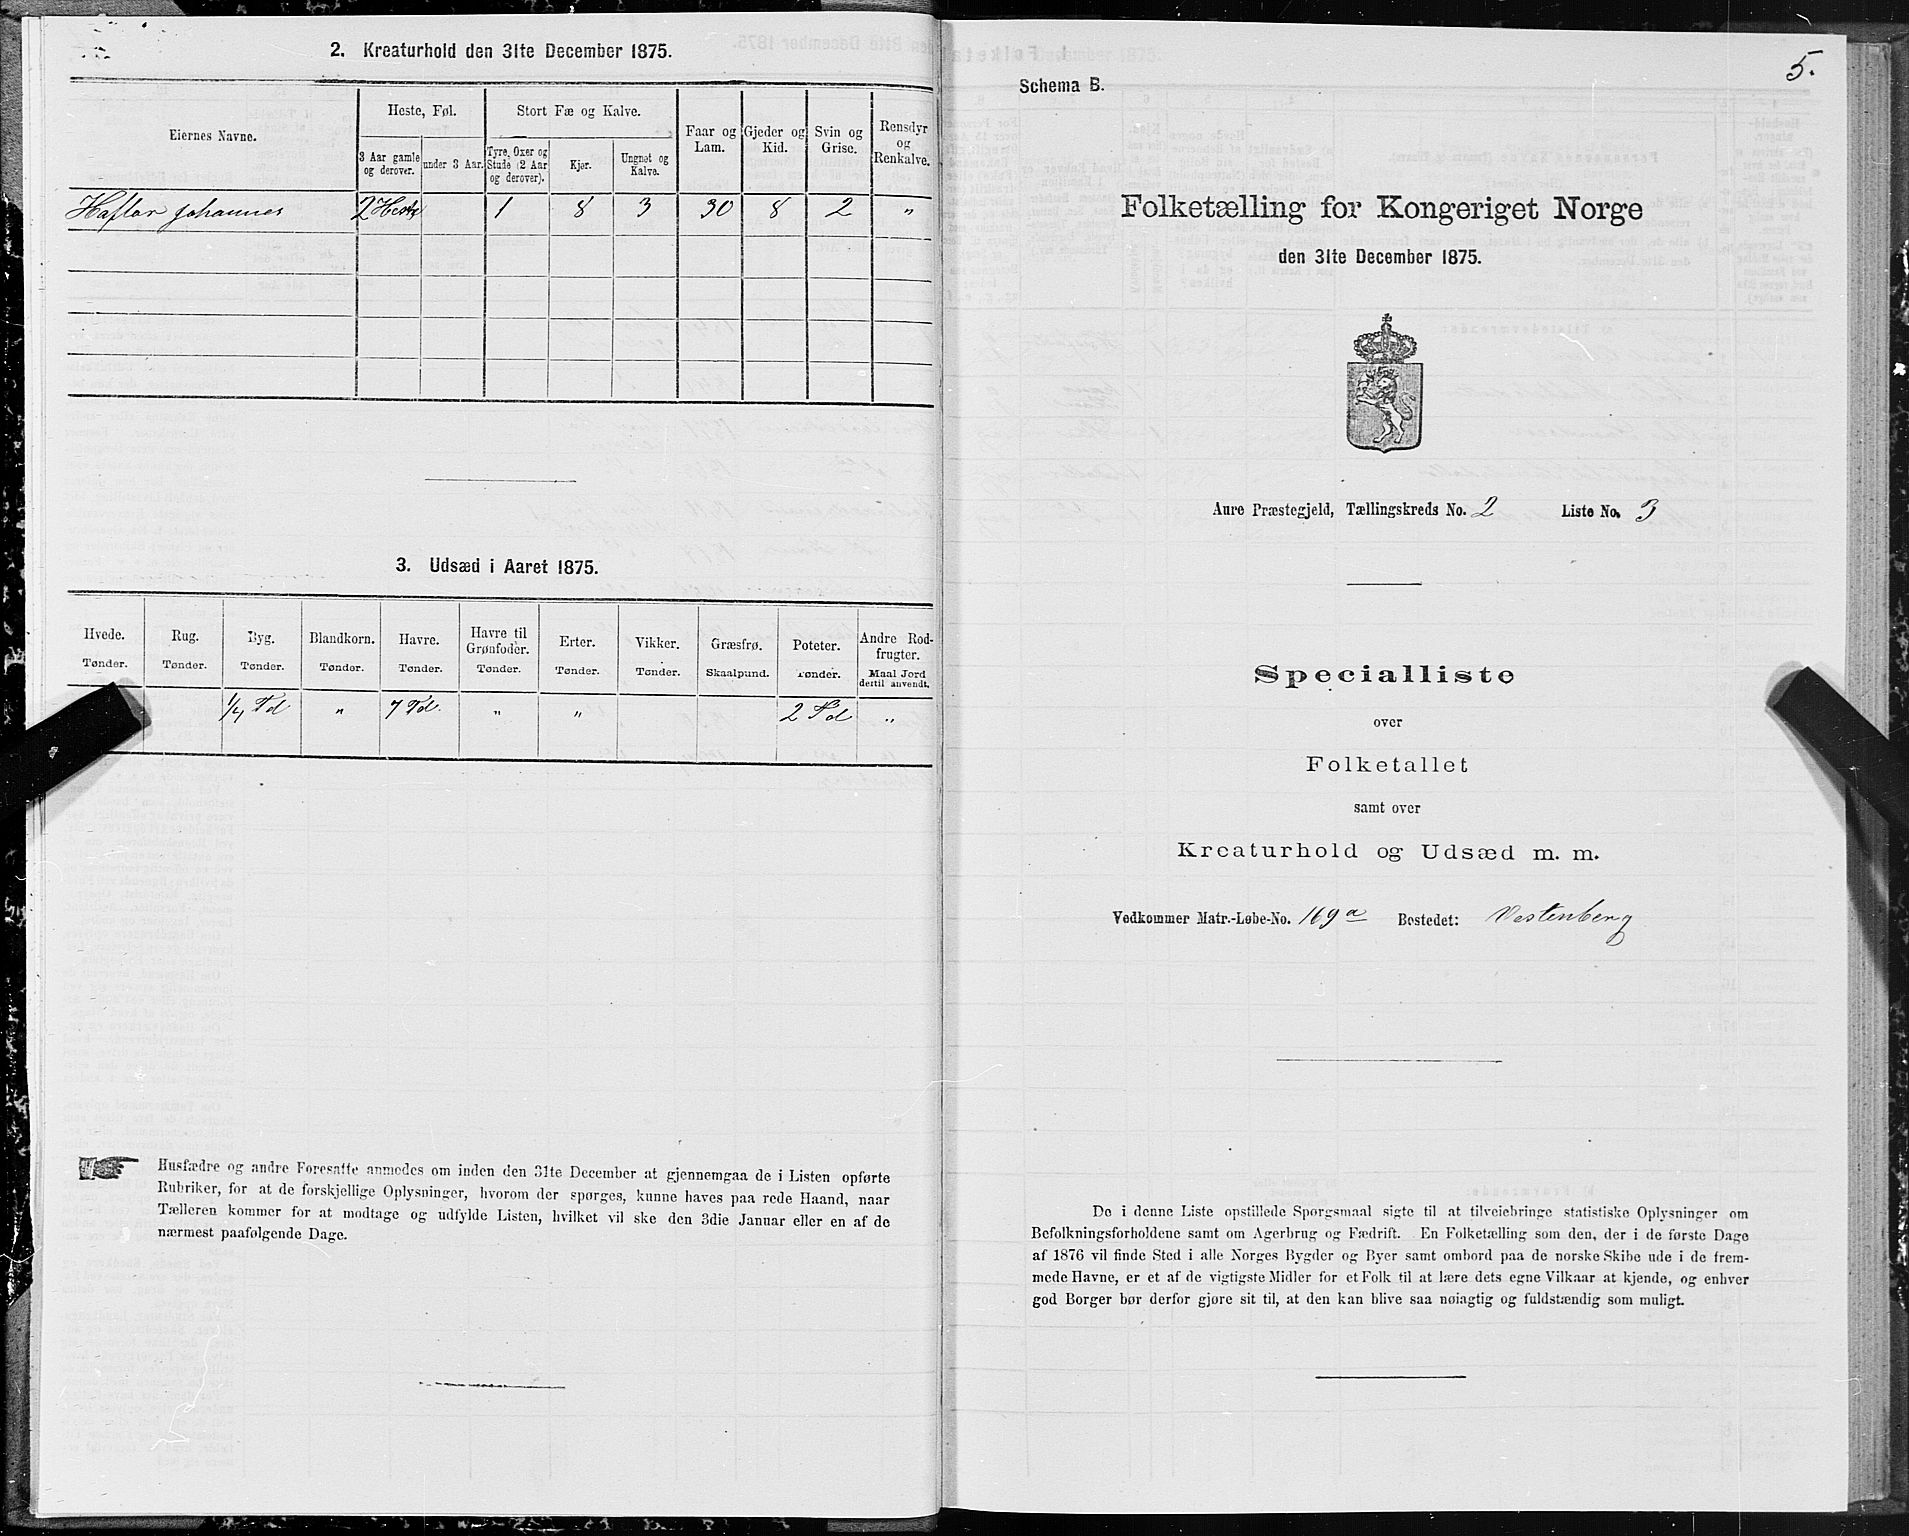 2. Kreaturhold den 31te December 1875.
Eiernes Navne.
Heste, Føl.
Stort Fæ og Kalve.
Faar og Lam.
Gjeder og Kid.
Svin og Grise.
Rensdyr og Renkalve.
3 Aar gamle og derover.
under 3 Aar.
Tyre, Oxer og Stude (2 Aar og derover).
Kjør.
Ungnøt og Kalve.
Haflor Johannes 2 Heste 1 8 3 30 8 2 "
3. Udsæd i Aaret 1875.
Hvede. Rug. Byg. Blandkorn. Havre. Havre til Grønfoder. Erter. Vikker. Græsfrø. Poteter. Andre Rodfrugter.
Tønder. Tønder. Tønder. Tønder. Tønder. Tønder. Tønder. Tønder. Skaalpund. Tønder. Maal Jord dertil anvendt.
1/4 Td " 7 Td. " " 2 Td "
Husfædre og andre Foresatte anmodes om inden den 31te December at gjennemgaa de i Listen opførte
Rubriker, for at de forskjellige Oplysninger, hvorom der spørges, kunne haves paa rede Haand, naar
Tælleren kommer for at modtage og udfylde Listen, hvilket vil ske den 3die Januar eller en af de
nærmest paafølgende Dage.
5.
Schema B.
Folketælling for Kongeriget Norge
den 31te December 1875.
Aure Præstegjeld, Tællingskreds No. 2 Liste No. 3
Specialliste
over
Folketallet
samt over
Kreaturhold og Udsæd m. m.
Vedkommer Matr.-Løbe-No. 169a Bostedet: Vestenberg
De i denne Liste opstillede Spørgsmaal sigte til at tilveiebringe statistiske Oplysninger om
Befolkningsforholdene samt om Agerbrug og Fædrift. En Folketælling som den, der i de første Dage
af 1876 vil finde Sted i alle Norges Bygder og Byer samt ombord paa de norske Skibe ude i de frem-
mede Havne, er et af de vigtigste Midler for et Folk til at lære dets egne Vilkaar at kjende, og enhver
god Borger bør derfor gjøre sit til, at den kan blive saa nøiagtig og fuldstændig som muligt.